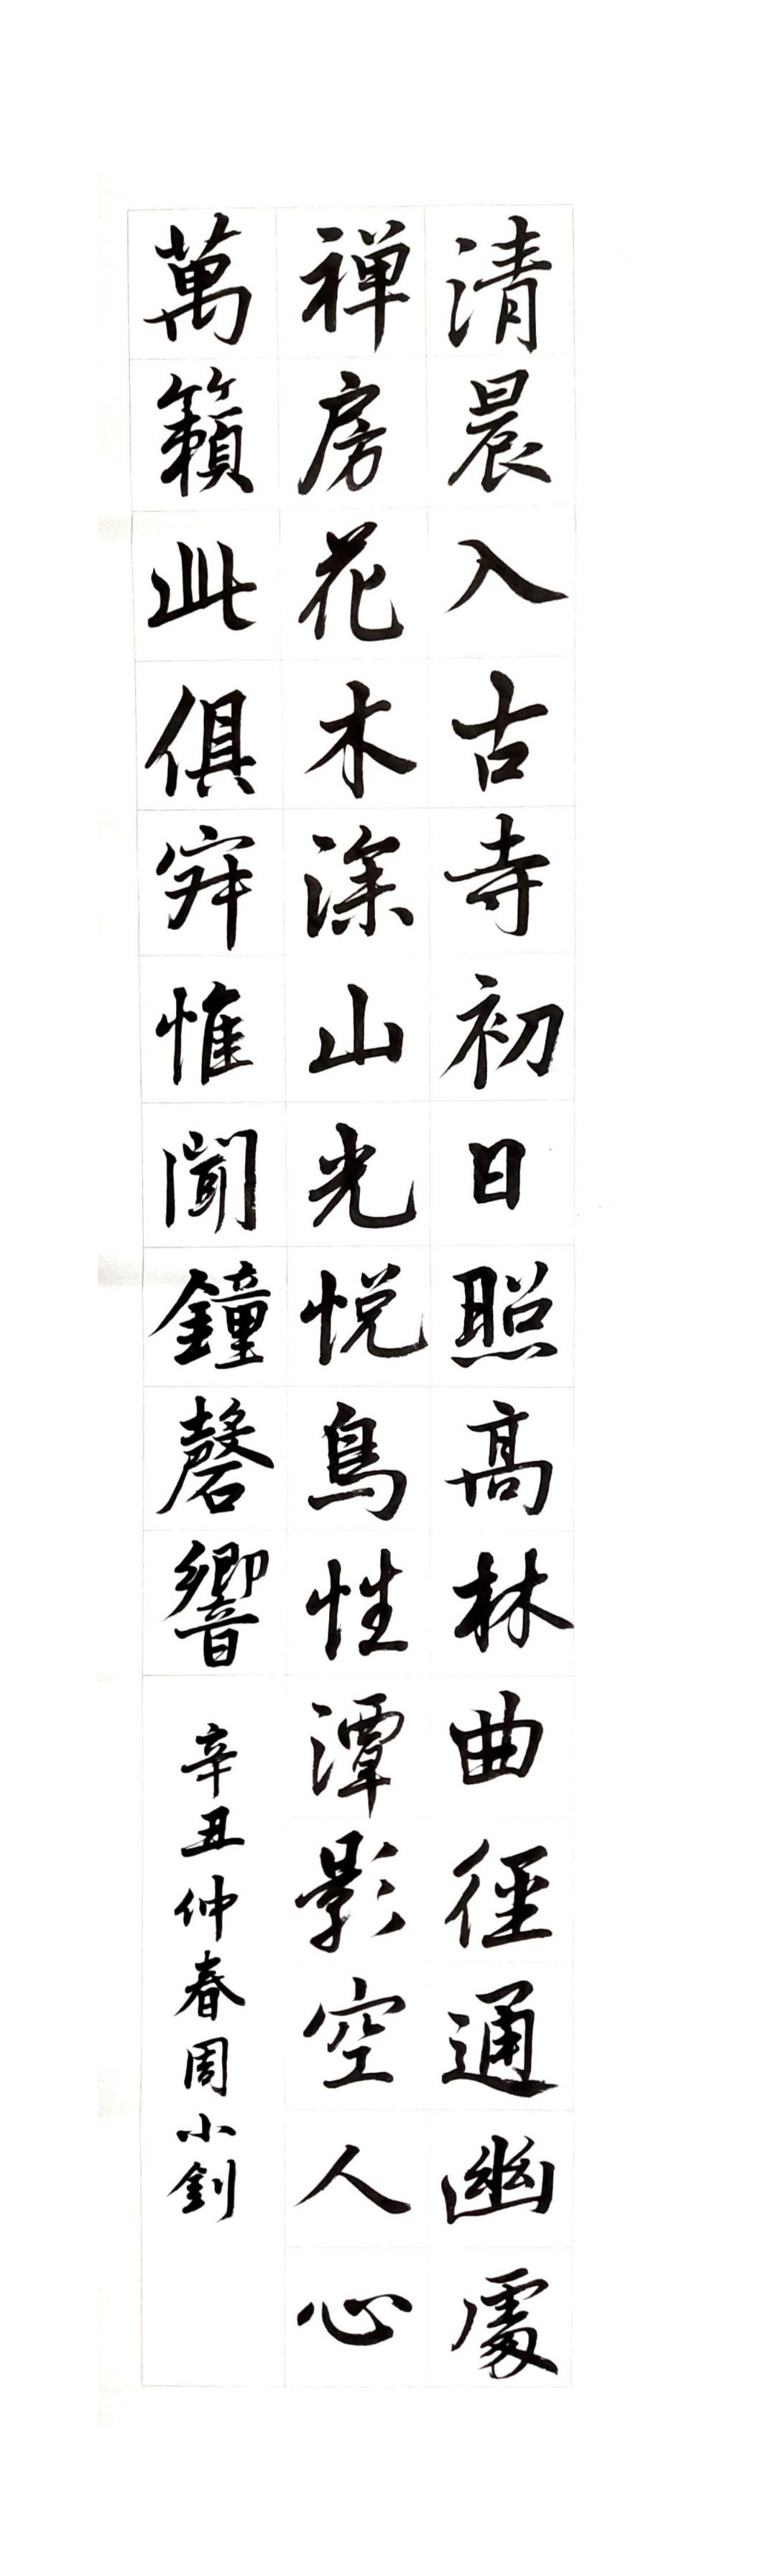 清晨入古寺初日照高林曲徑通幽處
禅房花木深山光悦鳥性潭影空人心
萬籟此俱寂惟聞鐘磬響
辛丑仲春周小釗